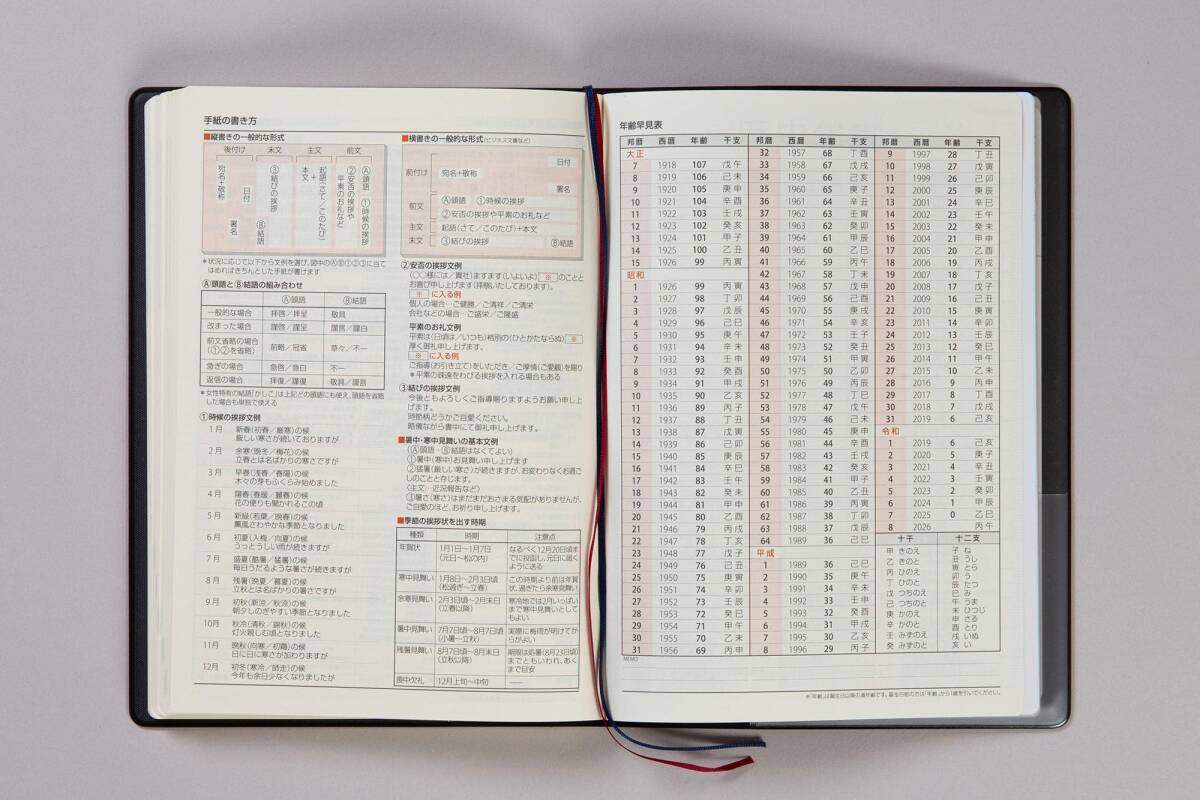 手紙の書き方
■縦書きの一般的な形式
後付け 末文 主文 前文
宛名+敬称
日付
署名
③結びの挨拶
Ⓑ結語
本文
+
起語(さて/このたび)
②安否の挨拶や
平素のお礼など
Ⓐ頭語 ①時候の挨拶
*状況に応じて以下から文例を選び、図中のⒶⒷ①②③に当て
はめればきちんとした手紙が書けます
Ⓐ頭語とⒷ結語の組み合わせ
Ⓐ頭語 Ⓑ結語
一般的な場合 拝啓/拝呈 敬具
改まった場合 謹啓/謹呈 謹言/謹白
前文省略の場合
(①②を省略) 前略/冠省 草々/不一
急ぎの場合 急啓/急白 不一
返信の場合 拝復/謹復 敬具/謹言
*女性特有の結語「かしこ」は上記どの頭語にも使え、頭語を省略
した場合も単独で使える
①時候の挨拶文例
1月 新春(初春/厳寒)の候
厳しい寒さが続いておりますが
2月 余寒(晩冬/梅花)の候
立春とは名ばかりの寒さですが
3月 早春(浅春/春陽)の候
木々の芽もふくらみ始めました
4月 陽春(春暖/麗春)の候
花の便りも聞かれるこの頃
5月 新緑(若葉/晩春)の候
薫風さわやかな季節となりました
6月 初夏(入梅/向夏)の候
うっとうしい雨が続きますが
7月 盛夏(酷暑/猛暑)の候
毎日うだるような暑さが続きますが
8月 残暑(晩夏/暮夏)の候
立秋とは名ばかりの暑さですが
9月 初秋(新涼/秋涼)の候
朝夕しのぎやすい季節となりました
10月 秋冷(清秋/錦秋)の候
灯火親しむ頃となりました
11月 晩秋(向寒/初霜)の候
日に日に寒さが加わりますが
12月 初冬(寒冷/師走)の候
今年も余日少なくなりましたが
■横書きの一般的な形式(ビジネス文書など)
日付
前付け 宛名+敬称
署名
前文 Ⓐ頭語 ①時候の挨拶
②安否の挨拶や平素のお礼など
主文 起語(さて/このたび)+本文
末文 ③結びの挨拶 Ⓑ結語
②安否の挨拶文例
(○○様には/貴社)ますます(いよいよ) ※ のことと
お喜び申し上げます(拝察いたしております)。
※ に入る例
個人の場合…ご健勝/ご清祥/ご清栄
会社などの場合…ご盛栄/ご隆盛
平素のお礼文例
平素は(日頃は/いつも)格別の(ひとかたならぬ) ※
厚く御礼申し上げます。
※ に入る例
ご指導(お引き立て)をいただき/ご厚情(ご愛顧)を賜り
*平素の疎遠をわびる挨拶を入れる場合もある
③結びの挨拶文例
今後ともよろしくご指導賜りますようお願い申し上
げます。
時節柄どうかご自愛ください。
略儀ながら書中にて御礼申し上げます。
■暑中・寒中見舞いの基本文例
(Ⓐ頭語・Ⓑ結語はなくてよい)
①暑中(寒中)お見舞い申し上げます
②猛暑(厳しい寒さ)が続きますが、お変わりなくお過ご
しのことと存じます。
〈主文…近況報告など〉
③暑さ(寒さ)はまだまだおさまる気配がありませんが、
ご自愛のほど、お祈り申し上げます。
■季節の挨拶状を出す時期
種類 時期 注意点
年賀状 1月1日〜1月7日
(元日〜松の内) なるべく12月20日頃ま
でに投函し、元日に届く
ように送る
寒中見舞い 1月8日〜2月3日頃
(松過ぎ〜立春) この時期より前は年賀
状、過ぎたら余寒見舞い
余寒見舞い 2月3日頃〜2月末日
(立春以降) 寒冷地では2月いっぱい
まで寒中見舞いとして
もよい
暑中見舞い 7月7日頃〜8月7日頃
(小暑〜立秋) 実際に梅雨が明けてか
らがよい
残暑見舞い 8月7日頃〜8月末日
(立秋以降) 期限は処暑(8月23日頃)
までともいわれ、あく
まで目安
喪中欠礼 12月上旬〜中旬 ――
年齢早見表
邦暦 西暦 年齢 干支
大正
7 1918 107 戊午
8 1919 106 己未
9 1920 105 庚申
10 1921 104 辛酉
11 1922 103 壬戌
12 1923 102 癸亥
13 1924 101 甲子
14 1925 100 乙丑
15 1926 99 丙寅
昭和
1 1926 99 丙寅
2 1927 98 丁卯
3 1928 97 戊辰
4 1929 96 己巳
5 1930 95 庚午
6 1931 94 辛未
7 1932 93 壬申
8 1933 92 癸酉
9 1934 91 甲戌
10 1935 90 乙亥
11 1936 89 丙子
12 1937 88 丁丑
13 1938 87 戊寅
14 1939 86 己卯
15 1940 85 庚辰
16 1941 84 辛巳
17 1942 83 壬午
18 1943 82 癸未
19 1944 81 甲申
20 1945 80 乙酉
21 1946 79 丙戌
22 1947 78 丁亥
23 1948 77 戊子
24 1949 76 己丑
25 1950 75 庚寅
26 1951 74 辛卯
27 1952 73 壬辰
28 1953 72 癸巳
29 1954 71 甲午
30 1955 70 乙未
31 1956 69 丙申
邦暦 西暦 年齢 干支
32 1957 68 丁酉
33 1958 67 戊戌
34 1959 66 己亥
35 1960 65 庚子
36 1961 64 辛丑
37 1962 63 壬寅
38 1963 62 癸卯
39 1964 61 甲辰
40 1965 60 乙巳
41 1966 59 丙午
42 1967 58 丁未
43 1968 57 戊申
44 1969 56 己酉
45 1970 55 庚戌
46 1971 54 辛亥
47 1972 53 壬子
48 1973 52 癸丑
49 1974 51 甲寅
50 1975 50 乙卯
51 1976 49 丙辰
52 1977 48 丁巳
53 1978 47 戊午
54 1979 46 己未
55 1980 45 庚申
56 1981 44 辛酉
57 1982 43 壬戌
58 1983 42 癸亥
59 1984 41 甲子
60 1985 40 乙丑
61 1986 39 丙寅
62 1987 38 丁卯
63 1988 37 戊辰
64 1989 36 己巳
平成
1 1989 36 己巳
2 1990 35 庚午
3 1991 34 辛未
4 1992 33 壬申
5 1993 32 癸酉
6 1994 31 甲戌
7 1995 30 乙亥
8 1996 29 丙子
邦暦 西暦 年齢 干支
9 1997 28 丁丑
10 1998 27 戊寅
11 1999 26 己卯
12 2000 25 庚辰
13 2001 24 辛巳
14 2002 23 壬午
15 2003 22 癸未
16 2004 21 甲申
17 2005 20 乙酉
18 2006 19 丙戌
19 2007 18 丁亥
20 2008 17 戊子
21 2009 16 己丑
22 2010 15 庚寅
23 2011 14 辛卯
24 2012 13 壬辰
25 2013 12 癸巳
26 2014 11 甲午
27 2015 10 乙未
28 2016 9 丙申
29 2017 8 丁酉
30 2018 7 戊戌
31 2019 6 己亥
令和
1 2019 6 己亥
2 2020 5 庚子
3 2021 4 辛丑
4 2022 3 壬寅
5 2023 2 癸卯
6 2024 1 甲辰
7 2025 0 乙巳
8 2026 丙午
十干 十二支
甲 きのえ 子 ね
乙 きのと 丑 うし
丙 ひのえ 寅 とら
丁 ひのと 卯 う
戊 つちのえ 辰 たつ
己 つちのと 巳 み
庚 かのえ 午 うま
辛 かのと 未 ひつじ
壬 みずのえ 申 さる
癸 みずのと 酉 とり
戌 いぬ
亥 い
MEMO
※「年齢」は誕生日以降の満年齢です。誕生日前の方は「年齢」から1歳を引いてください。